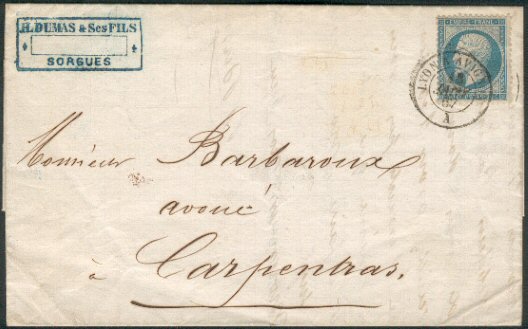 H. DUMAS & Ses FILS
SORGUES
EMPIRE FRANC
Monsieur Barbaroux
avoué
à Carpentras.